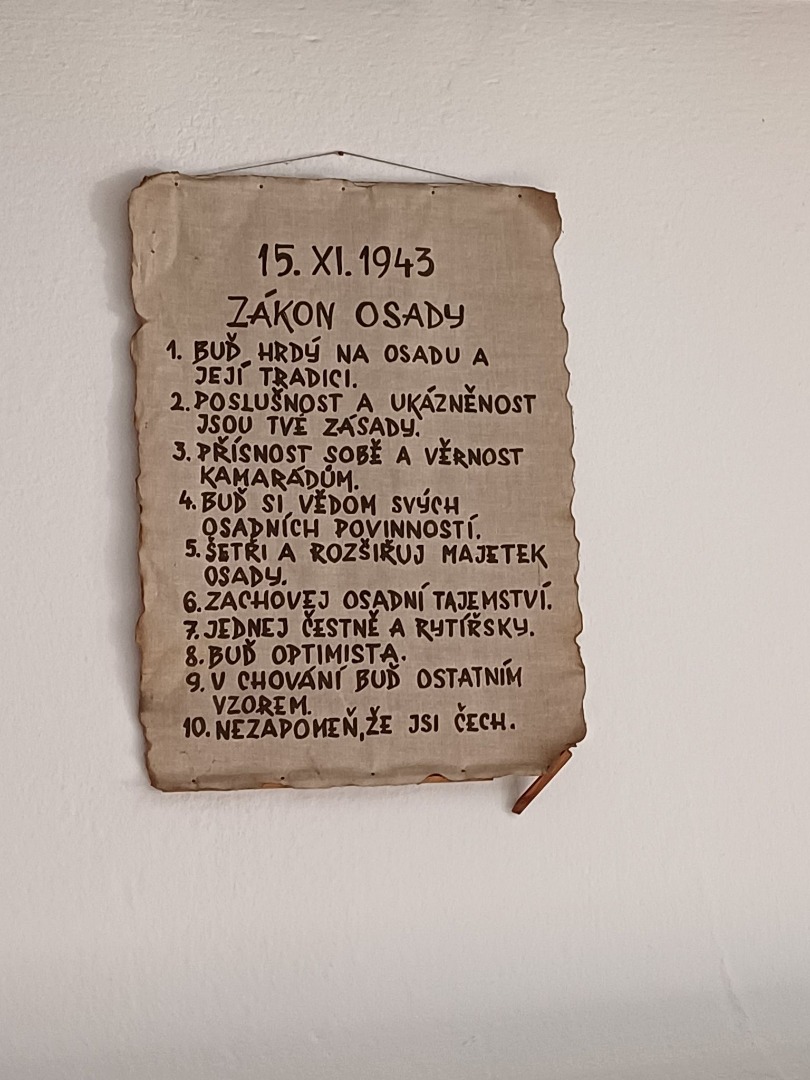 15. XI. 1943
ZÁKON OSADY
1. BUĎ HRDÝ NA OSADU A
JEJÍ TRADICI.
2. POSLUŠNOST A UKÁZNĚNOST
JSOU TVÉ ZÁSADY.
3. PŘÍSNOST SOBĚ A VĚRNOST
KAMARÁDŮM.
4. BUĎ SI VĚDOM SVÝCH
OSADNÍCH POVINNOSTÍ.
5. ŠETŘI A ROZŠIŘUJ MAJETEK
OSADY.
6. ZACHOVEJ OSADNÍ TAJEMSTVÍ.
7. JEDNEJ ČESTNĚ A RYTÍŘSKY.
8. BUĎ OPTIMISTA.
9. V CHOVÁNÍ BUĎ OSTATNÍM
VZOREM.
10. NEZAPOMEŇ, ŽE JSI ČECH.